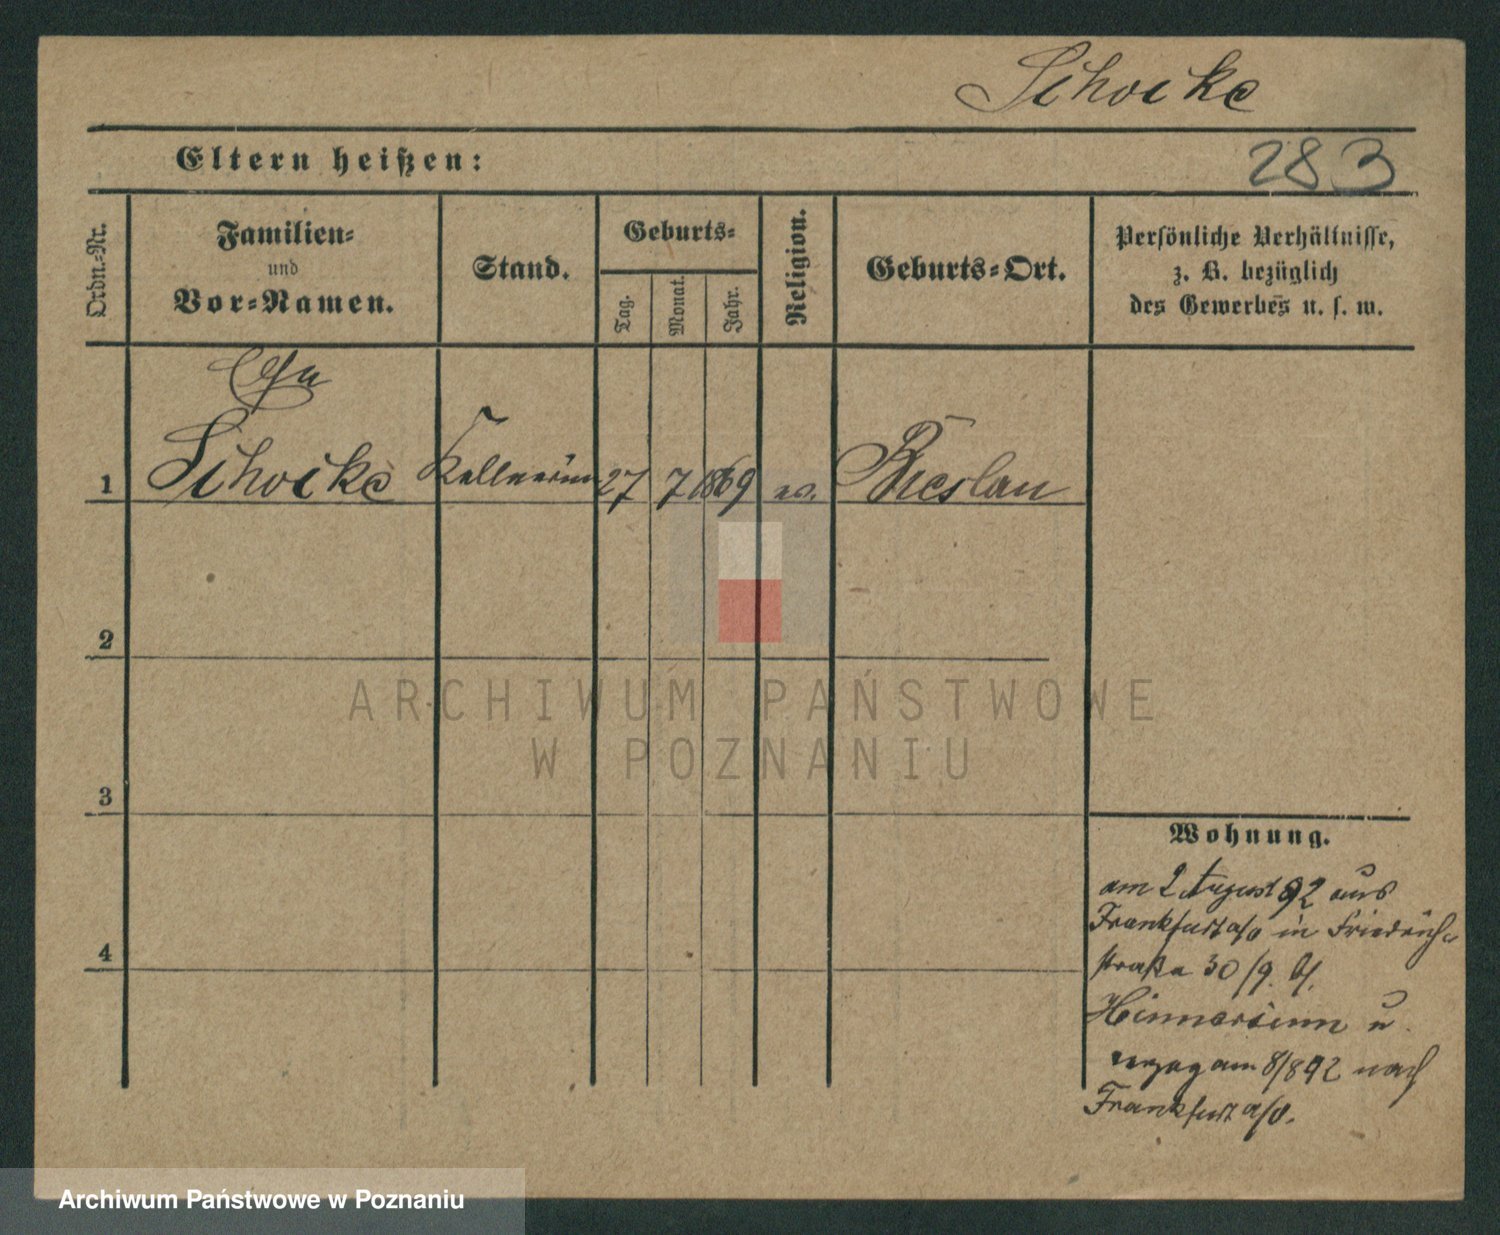 Schocke
Eltern heißen:
283
Ordn.-Nr.
Familien-
und
Vor-Namen.
Stand.
Geburts-
Tag.
Monat.
Jahr.
Religion.
Geburts-Ort.
Persönliche Verhältnisse,
z. B. bezüglich
des Gewerbes u. s. w.
1
Schocke
Kellnerin
27
7
1869
ev.
Breslau
2
ARCHIWUM PAŃSTWOWE
W POZNANIU
3
Wohnung.
am 2 August 92 aus
Frankfurt a/O in Friedrich-
straße 30/9. b/.
u.
verzog am 8/8 92 nach
Frankfurt a/O.
4
Archiwum Państwowe w Poznaniu